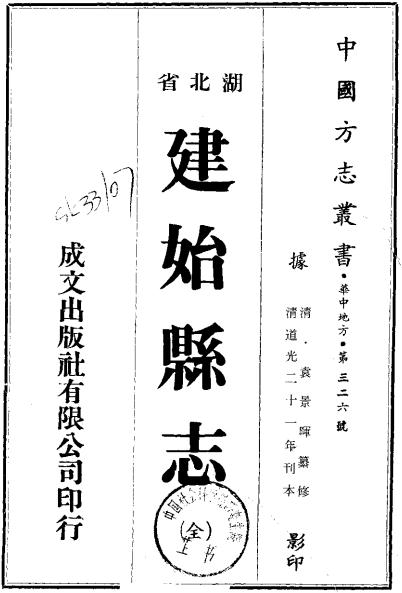 中國方志叢書・華中地方・第三二六號
據
清・袁景暉纂修
清道光二十一年刊本
影印
湖北省
建始縣志
(全)
成文出版社有限公司印行
SL33/07